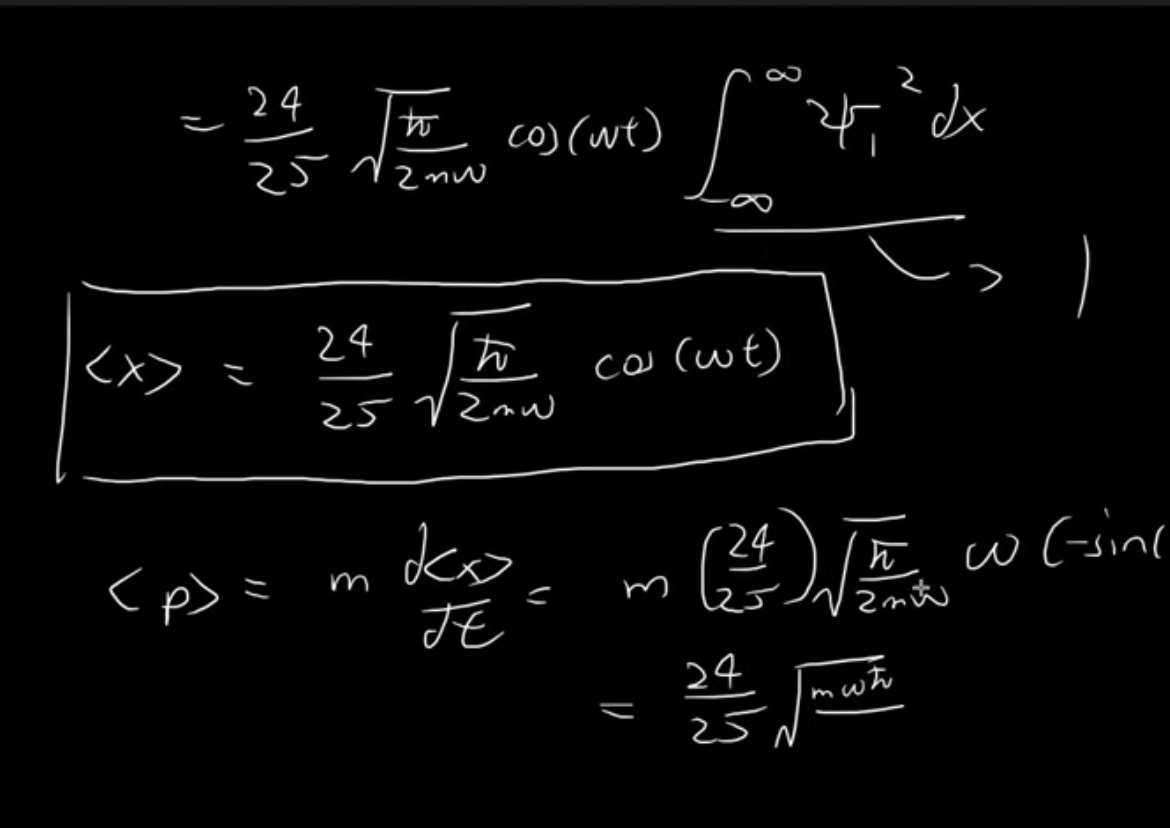 = 24/25 √(ħ/2mω) cos(ωt) ∫_{-∞}^{∞} ψ₁² dx
→ 1
<x> = 24/25 √(ħ/2mω) cos(ωt)
<p> = m d<x>/dt = m (24/25) √(ħ/2mω) ω (-sin(
= 24/25 √(mωħ